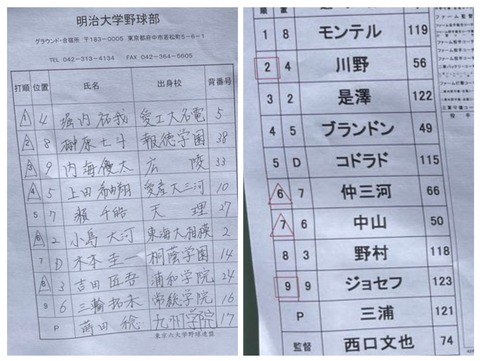 明治大学野球部
グラウンド・合宿所 〒183-0005 東京都府中市若松町5-6-1
TEL 042-313-4134 FAX 042-364-5605
打順 位置 氏名 出身校 背番号
4 堀内祐我 愛工大名電 5
8 榊原七斗 報徳学園 38
9 内海優太 広陵 33
5 上田希由翔 愛産大三河 10
5 7 瀬千皓 天理 27
2 小島大河 東海大相模 2
7 D 木本圭一 桐蔭学園 14
3 吉田匠吾 浦和学院 24
9 6 三輪拓未 常総学院 16
P 蒔田稔 九州学院 17
東京六大学野球連盟
1 8 モンテル 119
2 4 川野 56
3 2 是澤 122
4 5 ブランドン 49
5 D コドラド 115
6 7 仲三河 66
7 6 中山 50
8 3 野村 118
9 9 ジョセフ 123
P 三浦 121
監督 西口文也 74